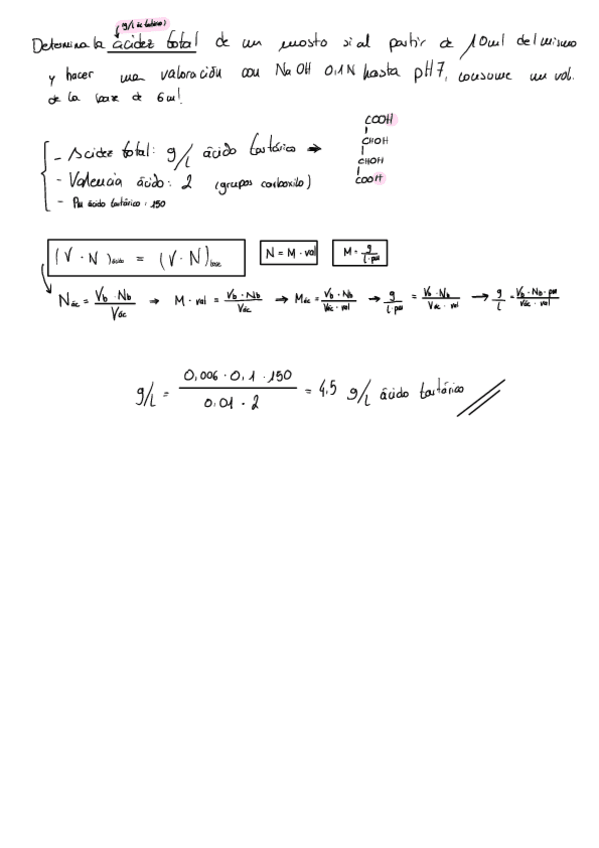 (g/L ác. tartárico)
Determina la ácidez total de un mosto si al partir de 10 ml del mismo
y hacer una valoración con NaOH 0,1N hasta pH7, consume un vol.
de la base de 6 ml.
COOH
- Acidez total: g/L ácido tartárico → CHOH
- Valencia ácido: 2 (grupos carboxilo) CHOH
- Pm ácido tartárico: 150 COOH
(V · N)ácido = (V · N)base N = M · val M = g / l · pm
Nác = Vb · Nb / Vác → M · val = Vb · Nb / Vác → Mác = Vb · Nb / Vác · val → g / l · pm = Vb · Nb / Vác · val → g / l = Vb · Nb · pm / Vác · val
g/L = 0,006 · 0,1 · 150 / 0,01 · 2 = 4,5 g/L ácido tartárico